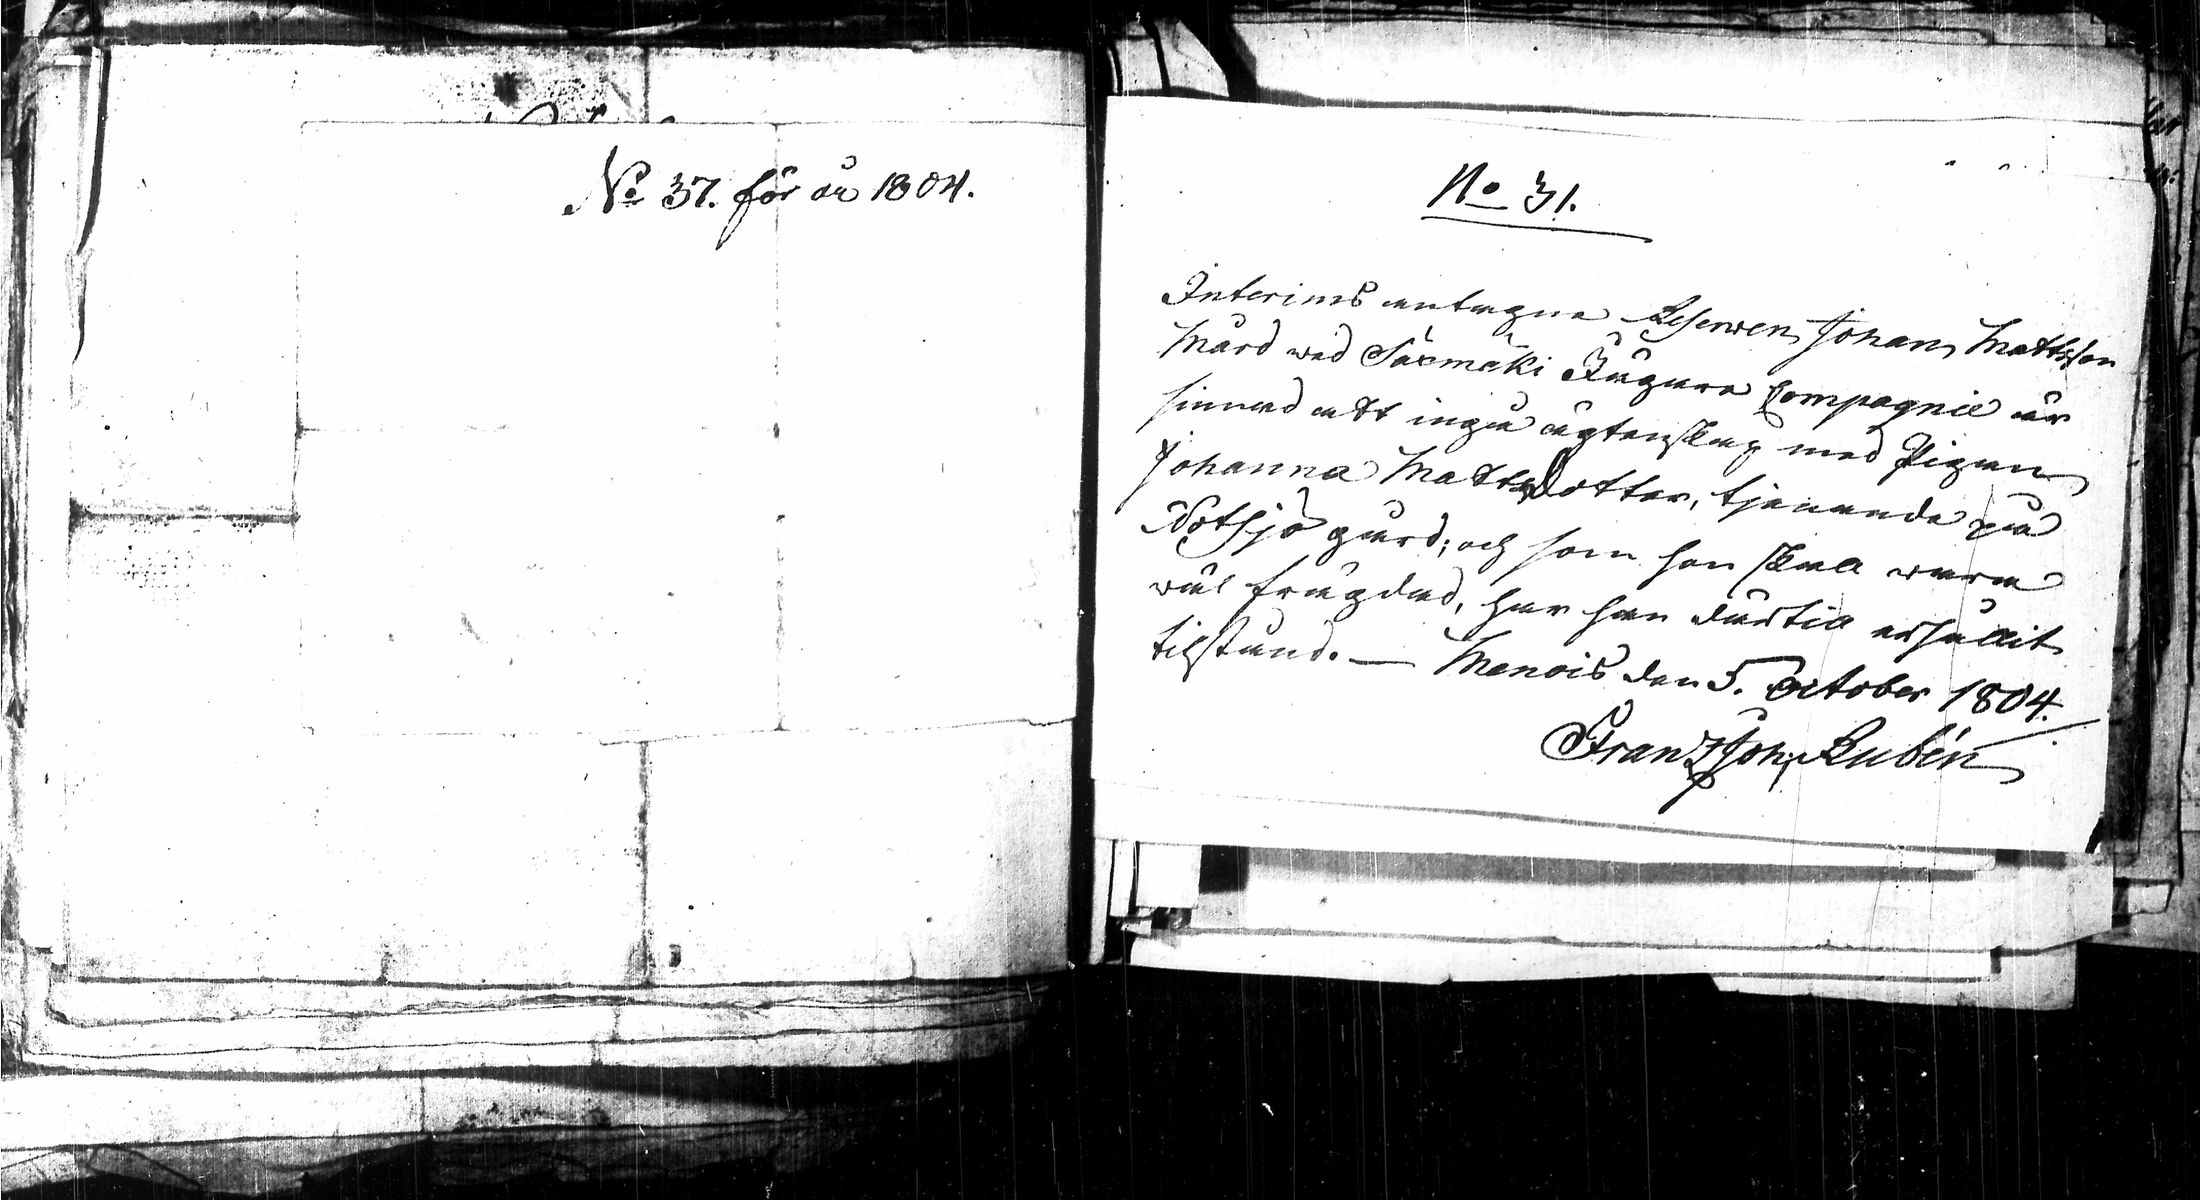 No 37. för år 1804.
No 31.
Interims antagne Reserven Johan Mattsson
Mård wid Säxmäki Jägare Compagnie är
sinnad att ingå ägtenskap med Pigan
Johanna MattsDotter, tjenande på
Notsjö gård; och som hon skall wara
wäl frägdad, har han därtill erhållit
tilstånd. — Menois den 5. october 1804.
Franz Joh: Rubén